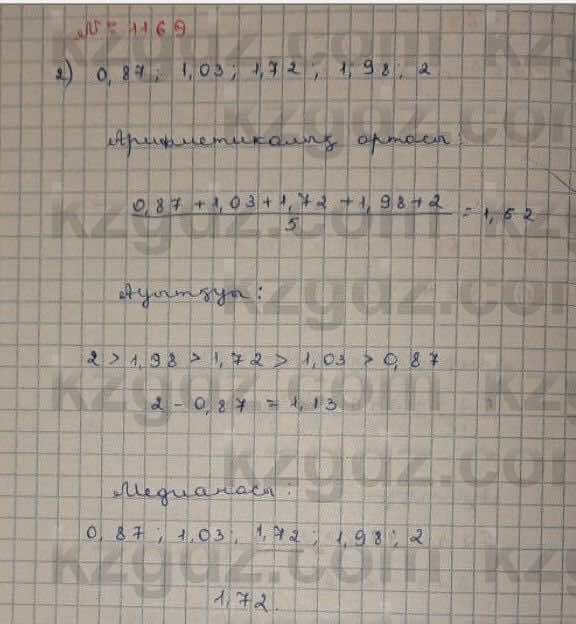 № 1169
2) 0,87; 1,03; 1,72; 1,98; 2
Арифметикалық ортасы:
0,87 + 1,03 + 1,72 + 1,98 + 2
5
= 1,52
Ауытқуы:
2 > 1,98 > 1,72 > 1,03 > 0,87
2 - 0,87 = 1,13
Медианасы:
0,87; 1,03; 1,72; 1,98; 2
1,72.
kzgdz.com